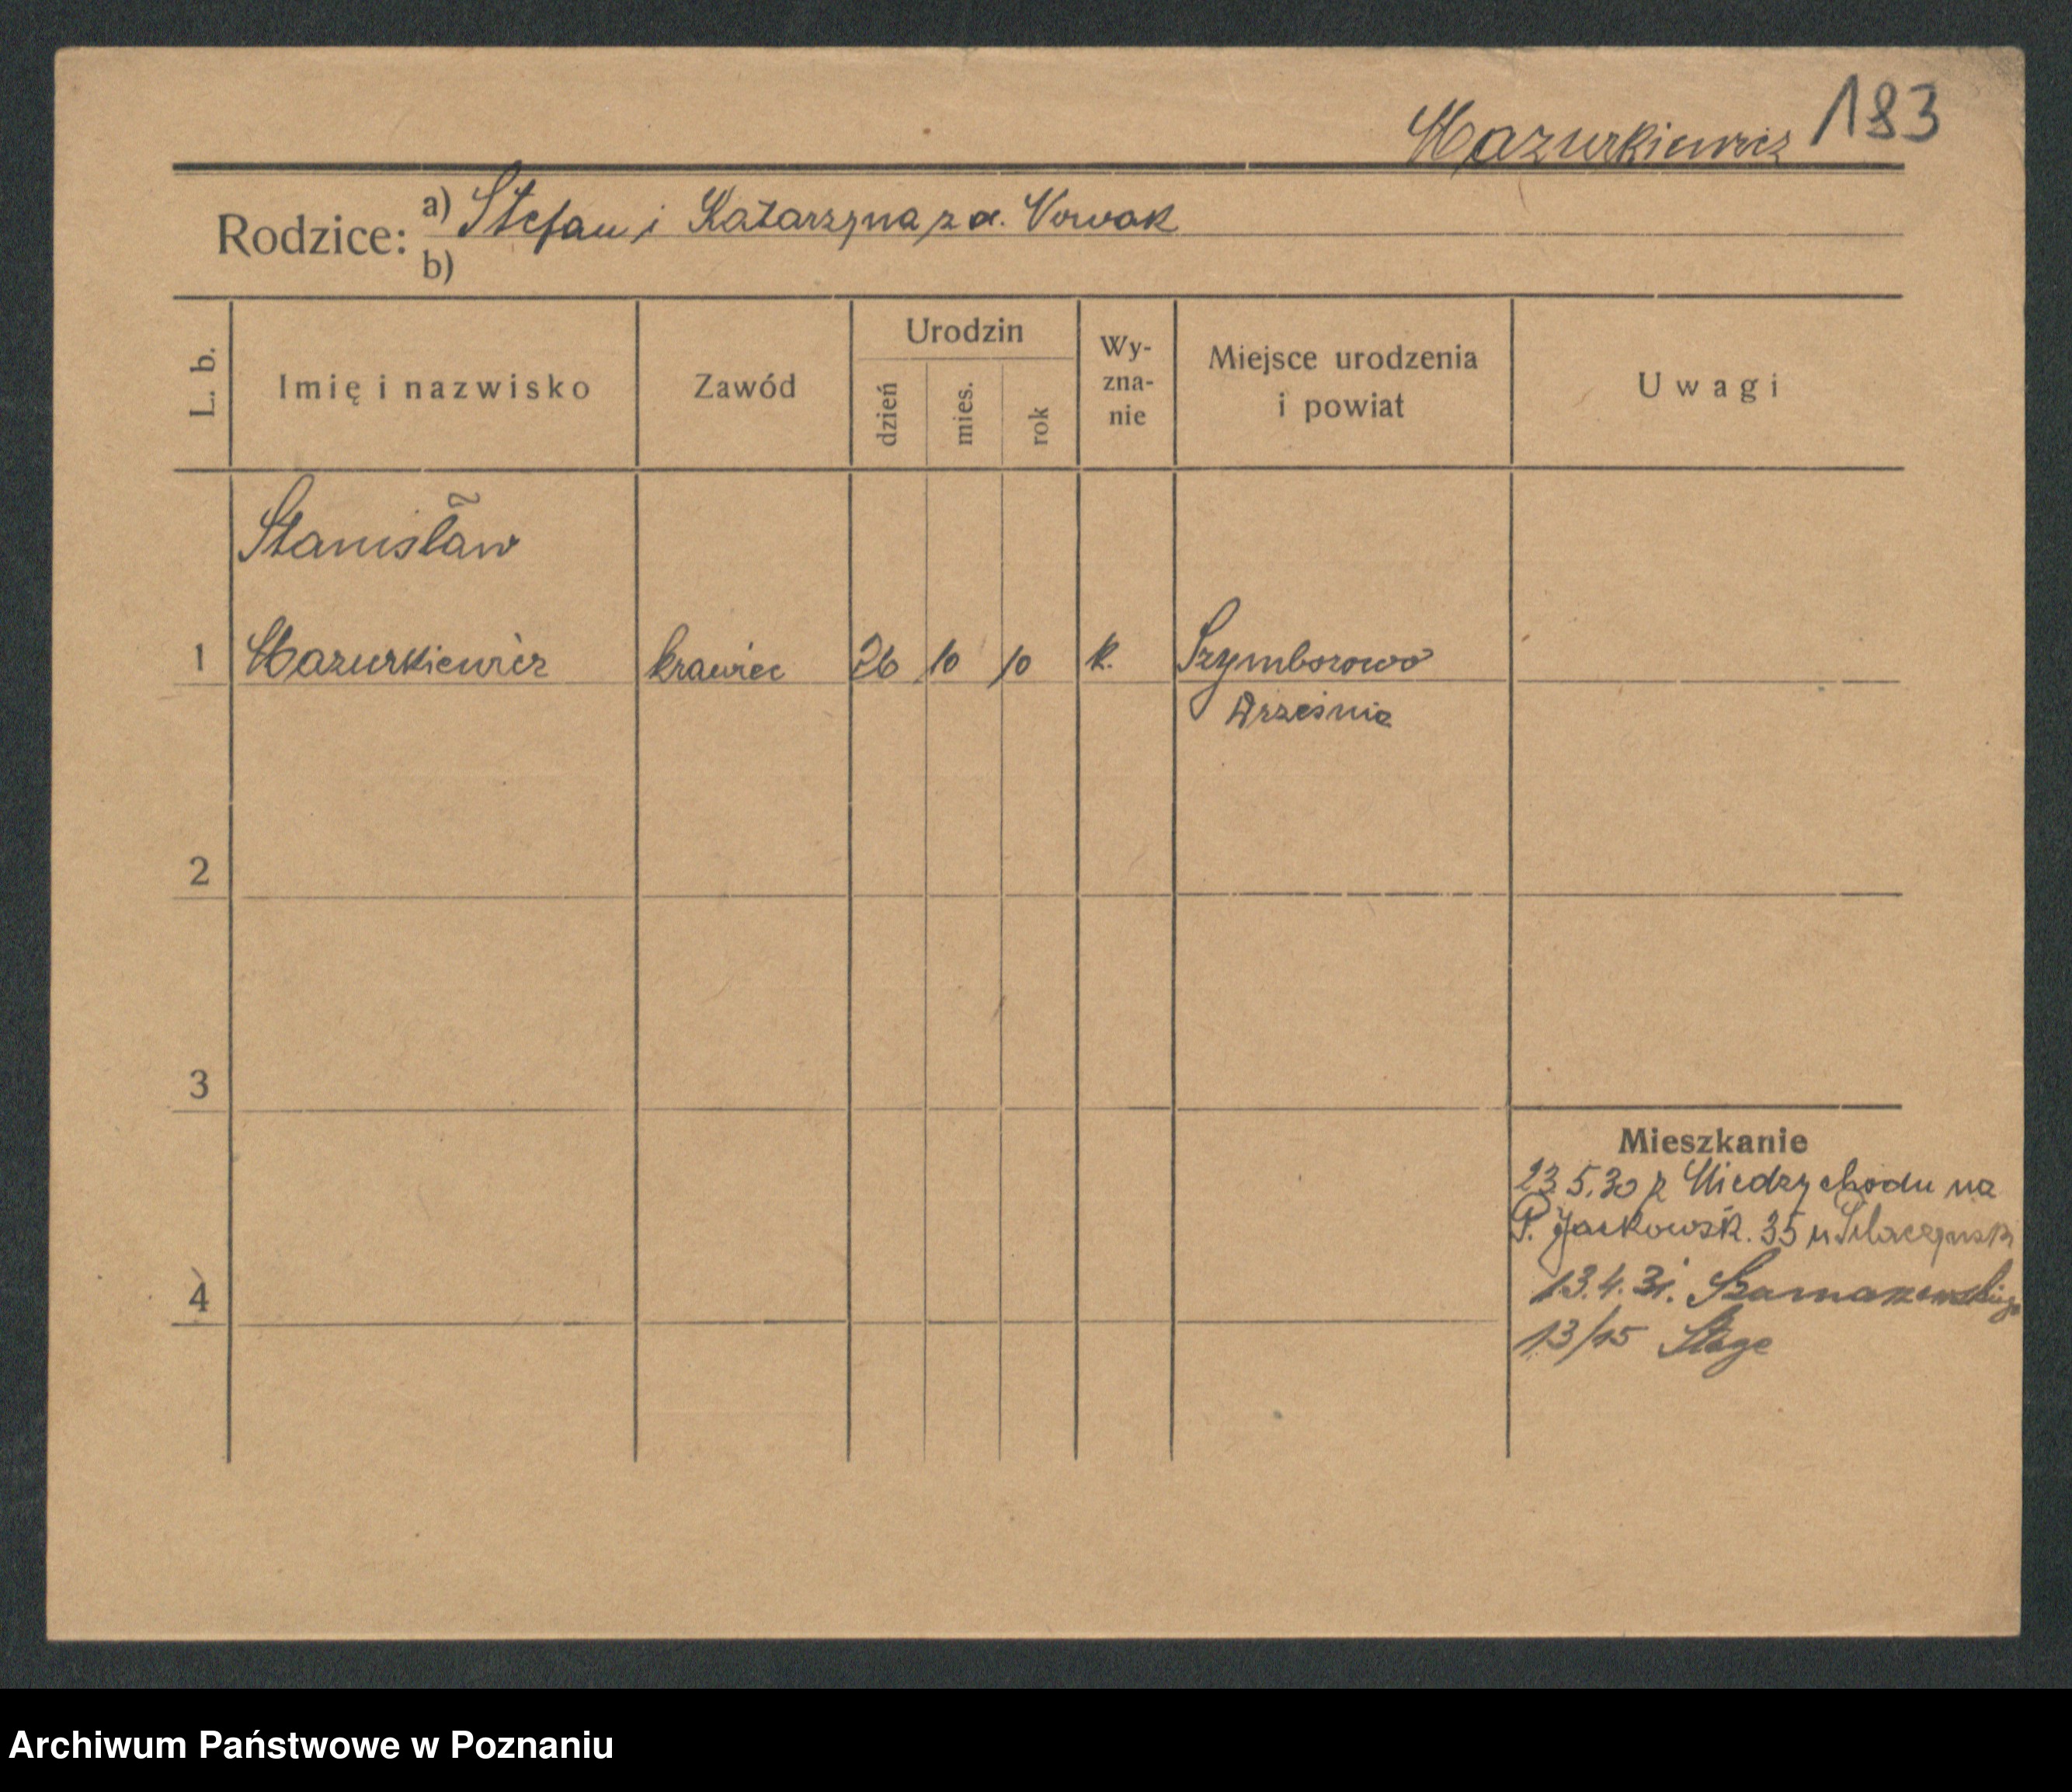 183
Mazurkiewicz
Rodzice: a) Stefan i Katarzyna z d. Nowak
b)
L. b.
Imię i nazwisko
Zawód
Urodzin
dzień
mies.
rok
Wy-
zna-
nie
Miejsce urodzenia
i powiat
Uwagi
Stanisław
1 Mazurkiewicz krawiec 26 10 10 k. Szymborowo
Września
2
3
4
Mieszkanie
23.5.30 z Miedzychodu na
P. Jackowsk. 35 u
13.4.31. Szamarzewskiego
13/15
Archiwum Państwowe w Poznaniu